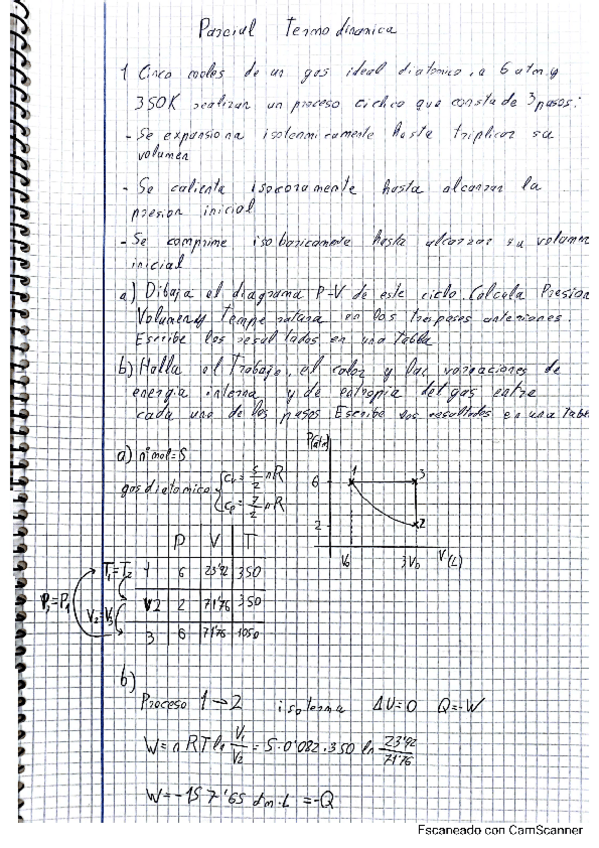 Parcial Termodinamica
1 Cinco moles de un gas ideal diatomico, a 6 atm y
350K realizan un proceso ciclico que consta de 3 pasos:
- Se expansiona isotermicamente hasta triplicar su
volumen
- Se calienta isocoramente hasta alcanzar la
presion inicial
- Se comprime isobaricamente hasta alcanzar su volumen
inicial
a) Dibuja el diagrama P-V de este ciclo. Calcula Presion
Volumen y Temperatura en los tres pasos anteriores.
Escribe los resultados en una tabla
b) Halla el Trabajo, el calor y las variaciones de
energia interna y de entropia del gas entre
cada uno de los pasos Escribe los resultados en una tabla
a) nº mol=5
gas diatomico { Cv = 5/2 nR
Cp = 7/2 nR
P(atm)
6
2
1
3
2
V0
3V0
V(L)
P V T
1 6 23'92 350
2 2 71'76 350
3 6 71'76 1050
T1=T2
V2=V3
P3=P1
b)
Proceso 1→2 isoterma ΔU=0 Q=-W
W=nRT ln V1/V2 = 5·0'082·350 ln 23'92/71'76
W=-157'65 atm·L =-Q
Escaneado con CamScanner